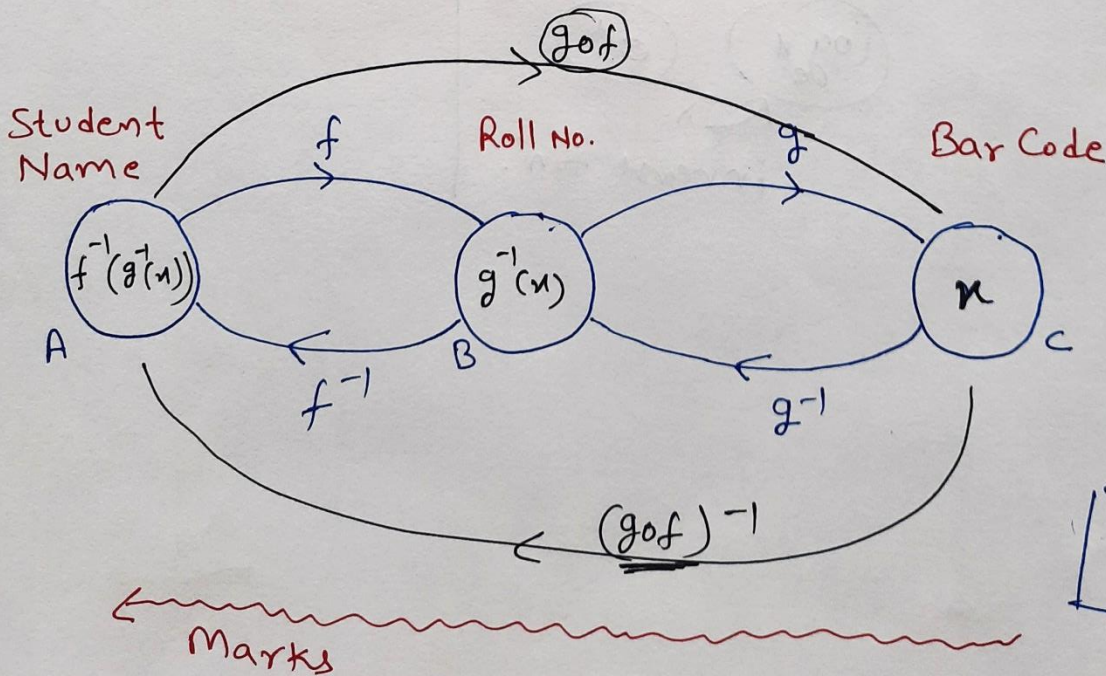 gof
Student
Name
f
Roll No.
g
Bar Code
f⁻¹(g⁻¹(x))
g⁻¹(x)
x
A
B
C
f⁻¹
g⁻¹
(gof)⁻¹
Marks